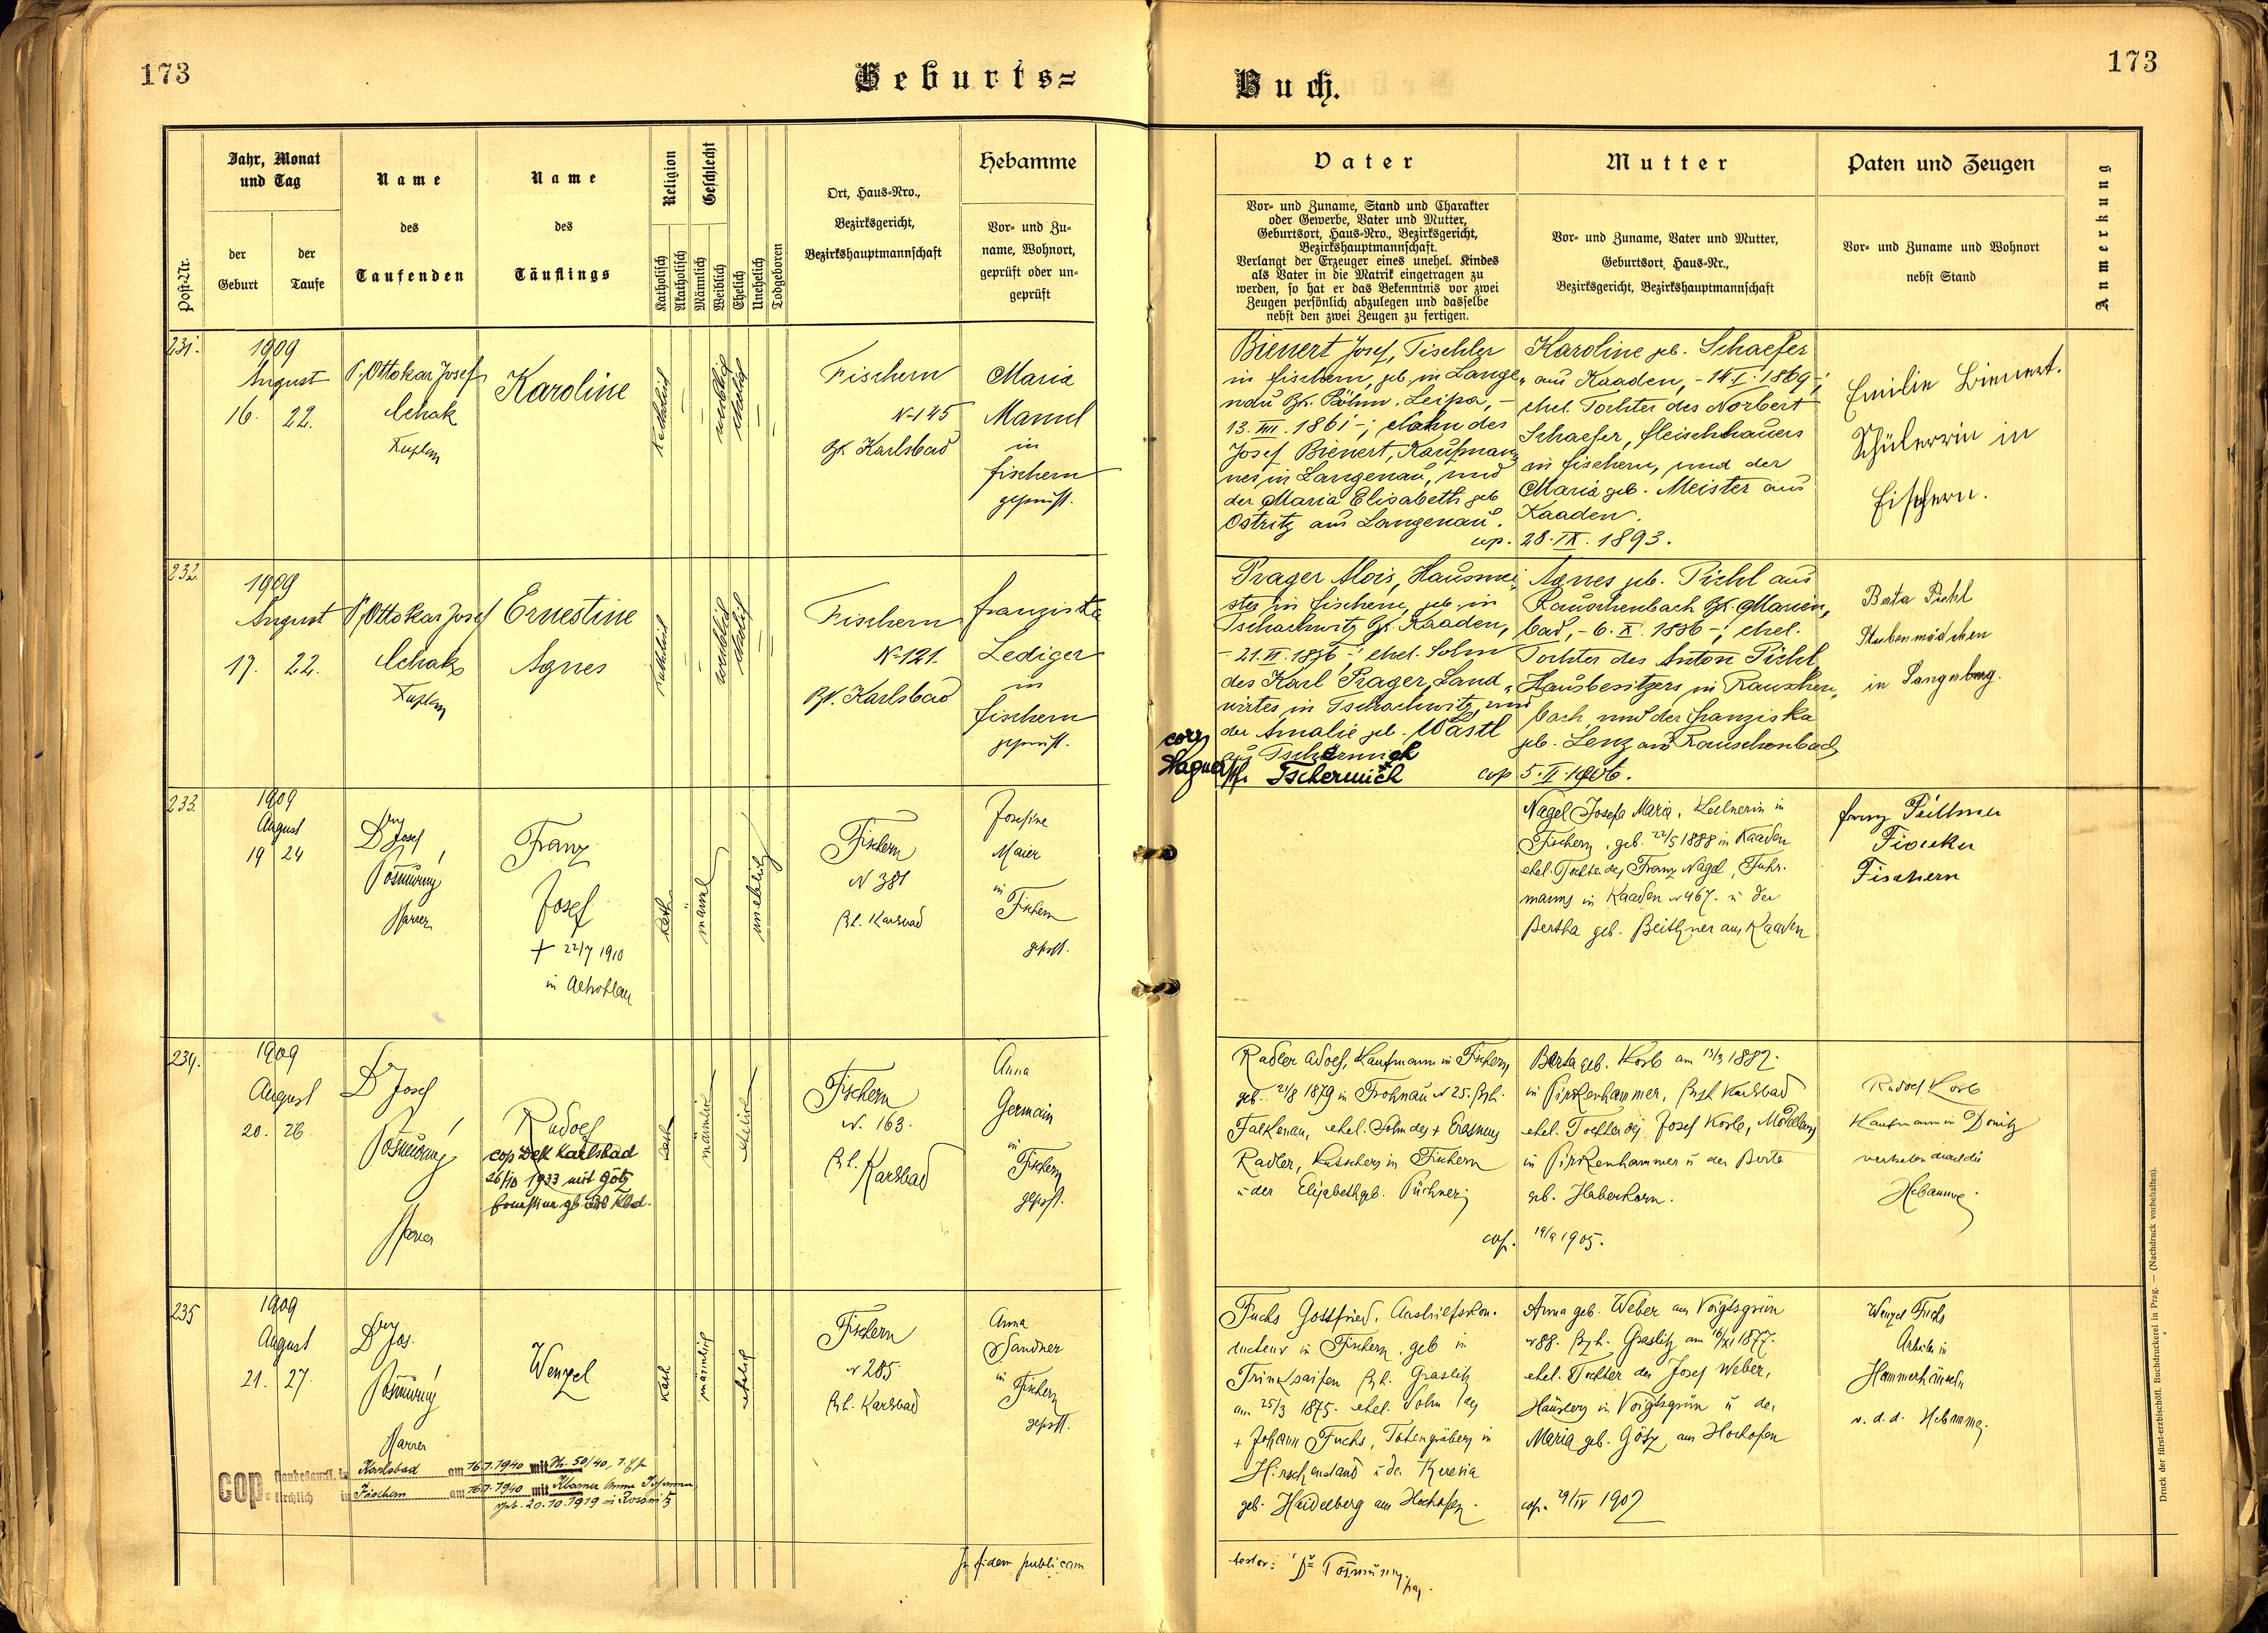 173
Geburts=
Post-Nr.
Jahr, Monat
und Tag
der
Geburt
der
Taufe
Name
des
Taufenden
Name
des
Täuflings
Religion
Katholisch
Akatholisch
Geschlecht
Männlich
Weiblich
Ehelich
Unehelich
Todgeboren
Ort, Haus=Nro.,
Bezirksgericht,
Bezirkshauptmannschaft
Hebamme
Vor= und Zu=
name, Wohnort,
geprüft oder un=
geprüft
231.
1909
August
16. 22.
P. Ottokar Josef
Karoline
Katholisch
weiblich
ehelich
Fischern
N-145
Bz. Karlsbad
Maria
in
Fischern
geprüft.
232.
1909
August
17. 22.
P. Ottokar Josef
Ernestine
Agnes
katholisch
weiblich
ehelich
Fischern
N-121.
Bz. Karlsbad
Franziska
Lediger
in
Fischern
geprüft.
233.
1909
August
19 24
Josef
Pfarrer
Franz
Josef
+ 22/7 1910
in Altrohlau
Kath
männl
unehelich
Fischern
N 381
Bh. Karlsbad
Josefine
Maier
in
Fischern
geprft.
234.
1909
August
20. 26
Dr Josef
Pfarrer
Rudolf
cop Karlsbad
26/10 1933 mit Götz
Kath
männlich
ehelich
Fischern
N. 163.
Bh. Karlsbad
Anna
Germain
in
Fischern
geprft.
235
1909
August
21. 27.
Jos.
Pfarrer
Wenzel
Kath
männlich
ehelich
Fischern
N 285
Bh. Karlsbad
Anna
Sandner
in
Fischern
geprft.
cop. standesamtl. in Karlsbad am 16.7.1940 mit 50/40,
kirchlich in Fischern am 16.7.1940 mit
geb. 20.10.1919 in
In fidem publicam
173
Buch.
Vater
Vor= und Zuname, Stand und Charakter
oder Gewerbe, Vater und Mutter,
Geburtsort, Haus=Nro., Bezirksgericht,
Bezirkshauptmannschaft.
Verlangt der Erzeuger eines unehel. Kindes
als Vater in die Matrik eingetragen zu
werden, so hat er das Bekenntnis vor zwei
Zeugen persönlich abzulegen und dasselbe
nebst den zwei Zeugen zu fertigen.
Mutter
Vor= und Zuname, Vater und Mutter,
Geburtsort, Haus=Nr.,
Bezirksgericht, Bezirkshauptmannschaft
Paten und Zeugen
Vor= und Zuname und Wohnort
nebst Stand
Anmerkung
Bienert Josef, Tischler
in Fischern, geb. in Lange„
nau Bz. Böhm. Leipa, –
13. VIII. 1861 –; Sohn des
Josef Bienert, Kaufman„
nes in Langenau, und
der Maria Elisabeth geb
Ostritz aus Langenau.
cop. 28. IX. 1893.
Karoline geb. Schaefer
aus Kaaden, – 14. I. 1869 –;
ehel. Tochter des Norbert
Schaefer, Fleischhauers
in Fischern, und der
Maria geb. Meister aus
Kaaden.
Emilie Bienert.
Schülerin in
Fischern.
Prager Alois, Hausmei„
ster in Fischern, geb. in
Tschachwitz Bz. Kaaden,
ehel. Sohn
des Karl Prager, Land„
wirtes in Tschachwitz, und
der Amalie geb. Wastl
aus Tschermich
corr.
Tschermich
cop 5. II. 1906.
Agnes geb. Pichl aus
Rauschenbach Bz. Marien„
bad, – 6. X. 1886 –; ehel.
Tochter des Anton Pichl,
Hausbesitzers in Rauschen„
bach, und der Franziska
geb. Lenz aus Rauschenbach
Berta Pichl
Stubenmädchen
in
Nagel Josefa Maria, Kellnerin in
Fischern, geb. 22/5 1888 in Kaaden
ehel. Tochter des Franz Nagel, Fuhr-
manns in Kaaden N 467. u der
Bertha geb. Beithner aus Kaaden
Franz
Fischern
Radler Adolf, Kaufmann in Fischern
geb. 21/8 1879 in Frohnau N 25. Bzh.
Falkenau, ehel. Sohn des + Erasmus
Radler, Kutschers in Fischern
u der Elisabeth geb. Püchner;
cop. 19/9 1905.
Berta geb. Korb am 13/3 1882.
in Pirkenhammer, Bzh Karlsbad
ehel. Tochter des Josef Korb,
in Pirkenhammer u der Berta
geb. Haberkorn.
Rudolf Korb
Kaufmann in Donitz
vertreten durch die
Hebamme.
Fuchs Gottfried,
in Fischern, geb in
Trinksaifen Bzh. Graslitz
am 25/3 1875. ehel. Sohn des
+ Johann Fuchs, Totengräbers in
Hirschenstand u der Theresia
geb. Heidelberg aus Hochofen.
cop. 29/IV 1907
Anna geb. Weber aus Voigtsgrün
N 88. Bzh. Graslitz am 16/XI 1877.
ehel. Tochter des Josef Weber,
Häuslers in Voigtsgrün u der
Maria geb. Götz aus Hochofen
Wenzel Fuchs
Arbeiter in
Hammerhäuseln
v. d. d. Hebamme.
testor:
Druck der fürst-erzbischöfl. Buchdruckerei in Prag. — (Nachdruck vorbehalten).